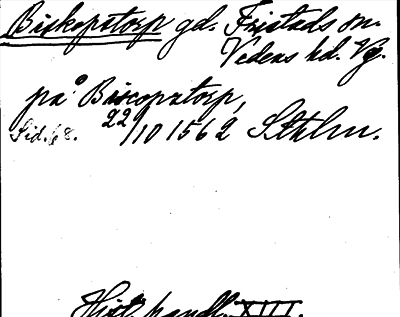 Biskopstorp gd. Fristads sn.
Vedens hd. Vg.
på Biscopztorp,
Sid. 68. 22/10 1562 Sthlm.
Hist. handl. XIII.